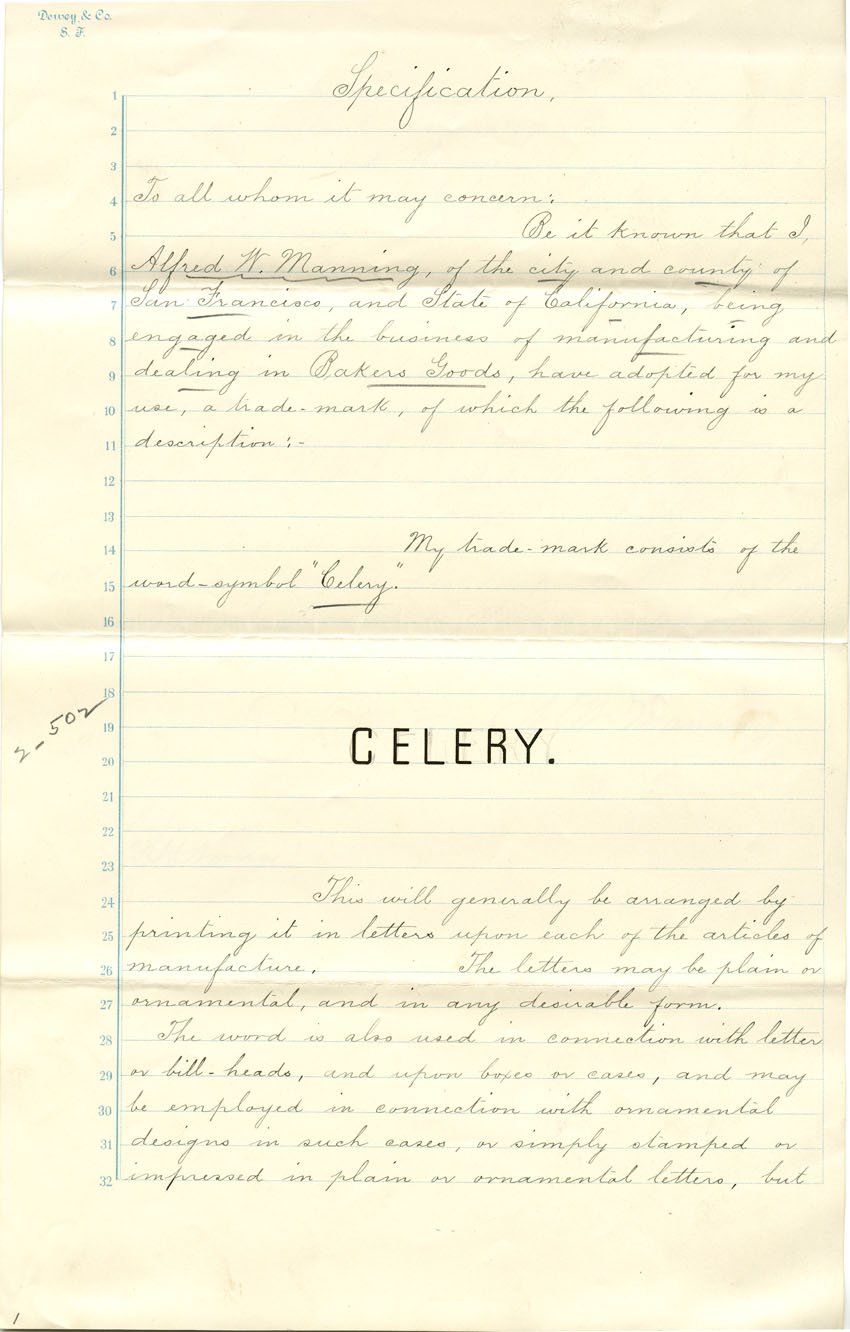 Dewey & Co.
S. F.
Specification.
1
2
3
4 To all whom it may concern:
5 Be it known that I,
6 Alfred W. Manning, of the city and county of
7 San Francisco, and State of California, being
8 engaged in the business of manufacturing and
9 dealing in Bakers Goods, have adopted for my
10 use, a trade-mark, of which the following is a
11 description:-
12
13
14 My trade-mark consists of the
15 word-symbol "Celery."
16
17
18
2-502
19
20 CELERY.
21
22
23
24 This will generally be arranged by
25 printing it in letters upon each of the articles of
26 manufacture. The letters may be plain or
27 ornamental, and in any desirable form.
28 The word is also used in connection with letter
29 or bill-heads, and upon boxes or cases, and may
30 be employed in connection with ornamental
31 designs in such cases, or simply stamped or
32 impressed in plain or ornamental letters, but
1